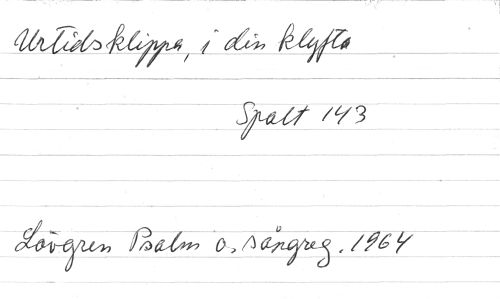 Urtidsklippa, i din klyfta
Spalt 143
Lövgren Psalm o. sångreg. 1964